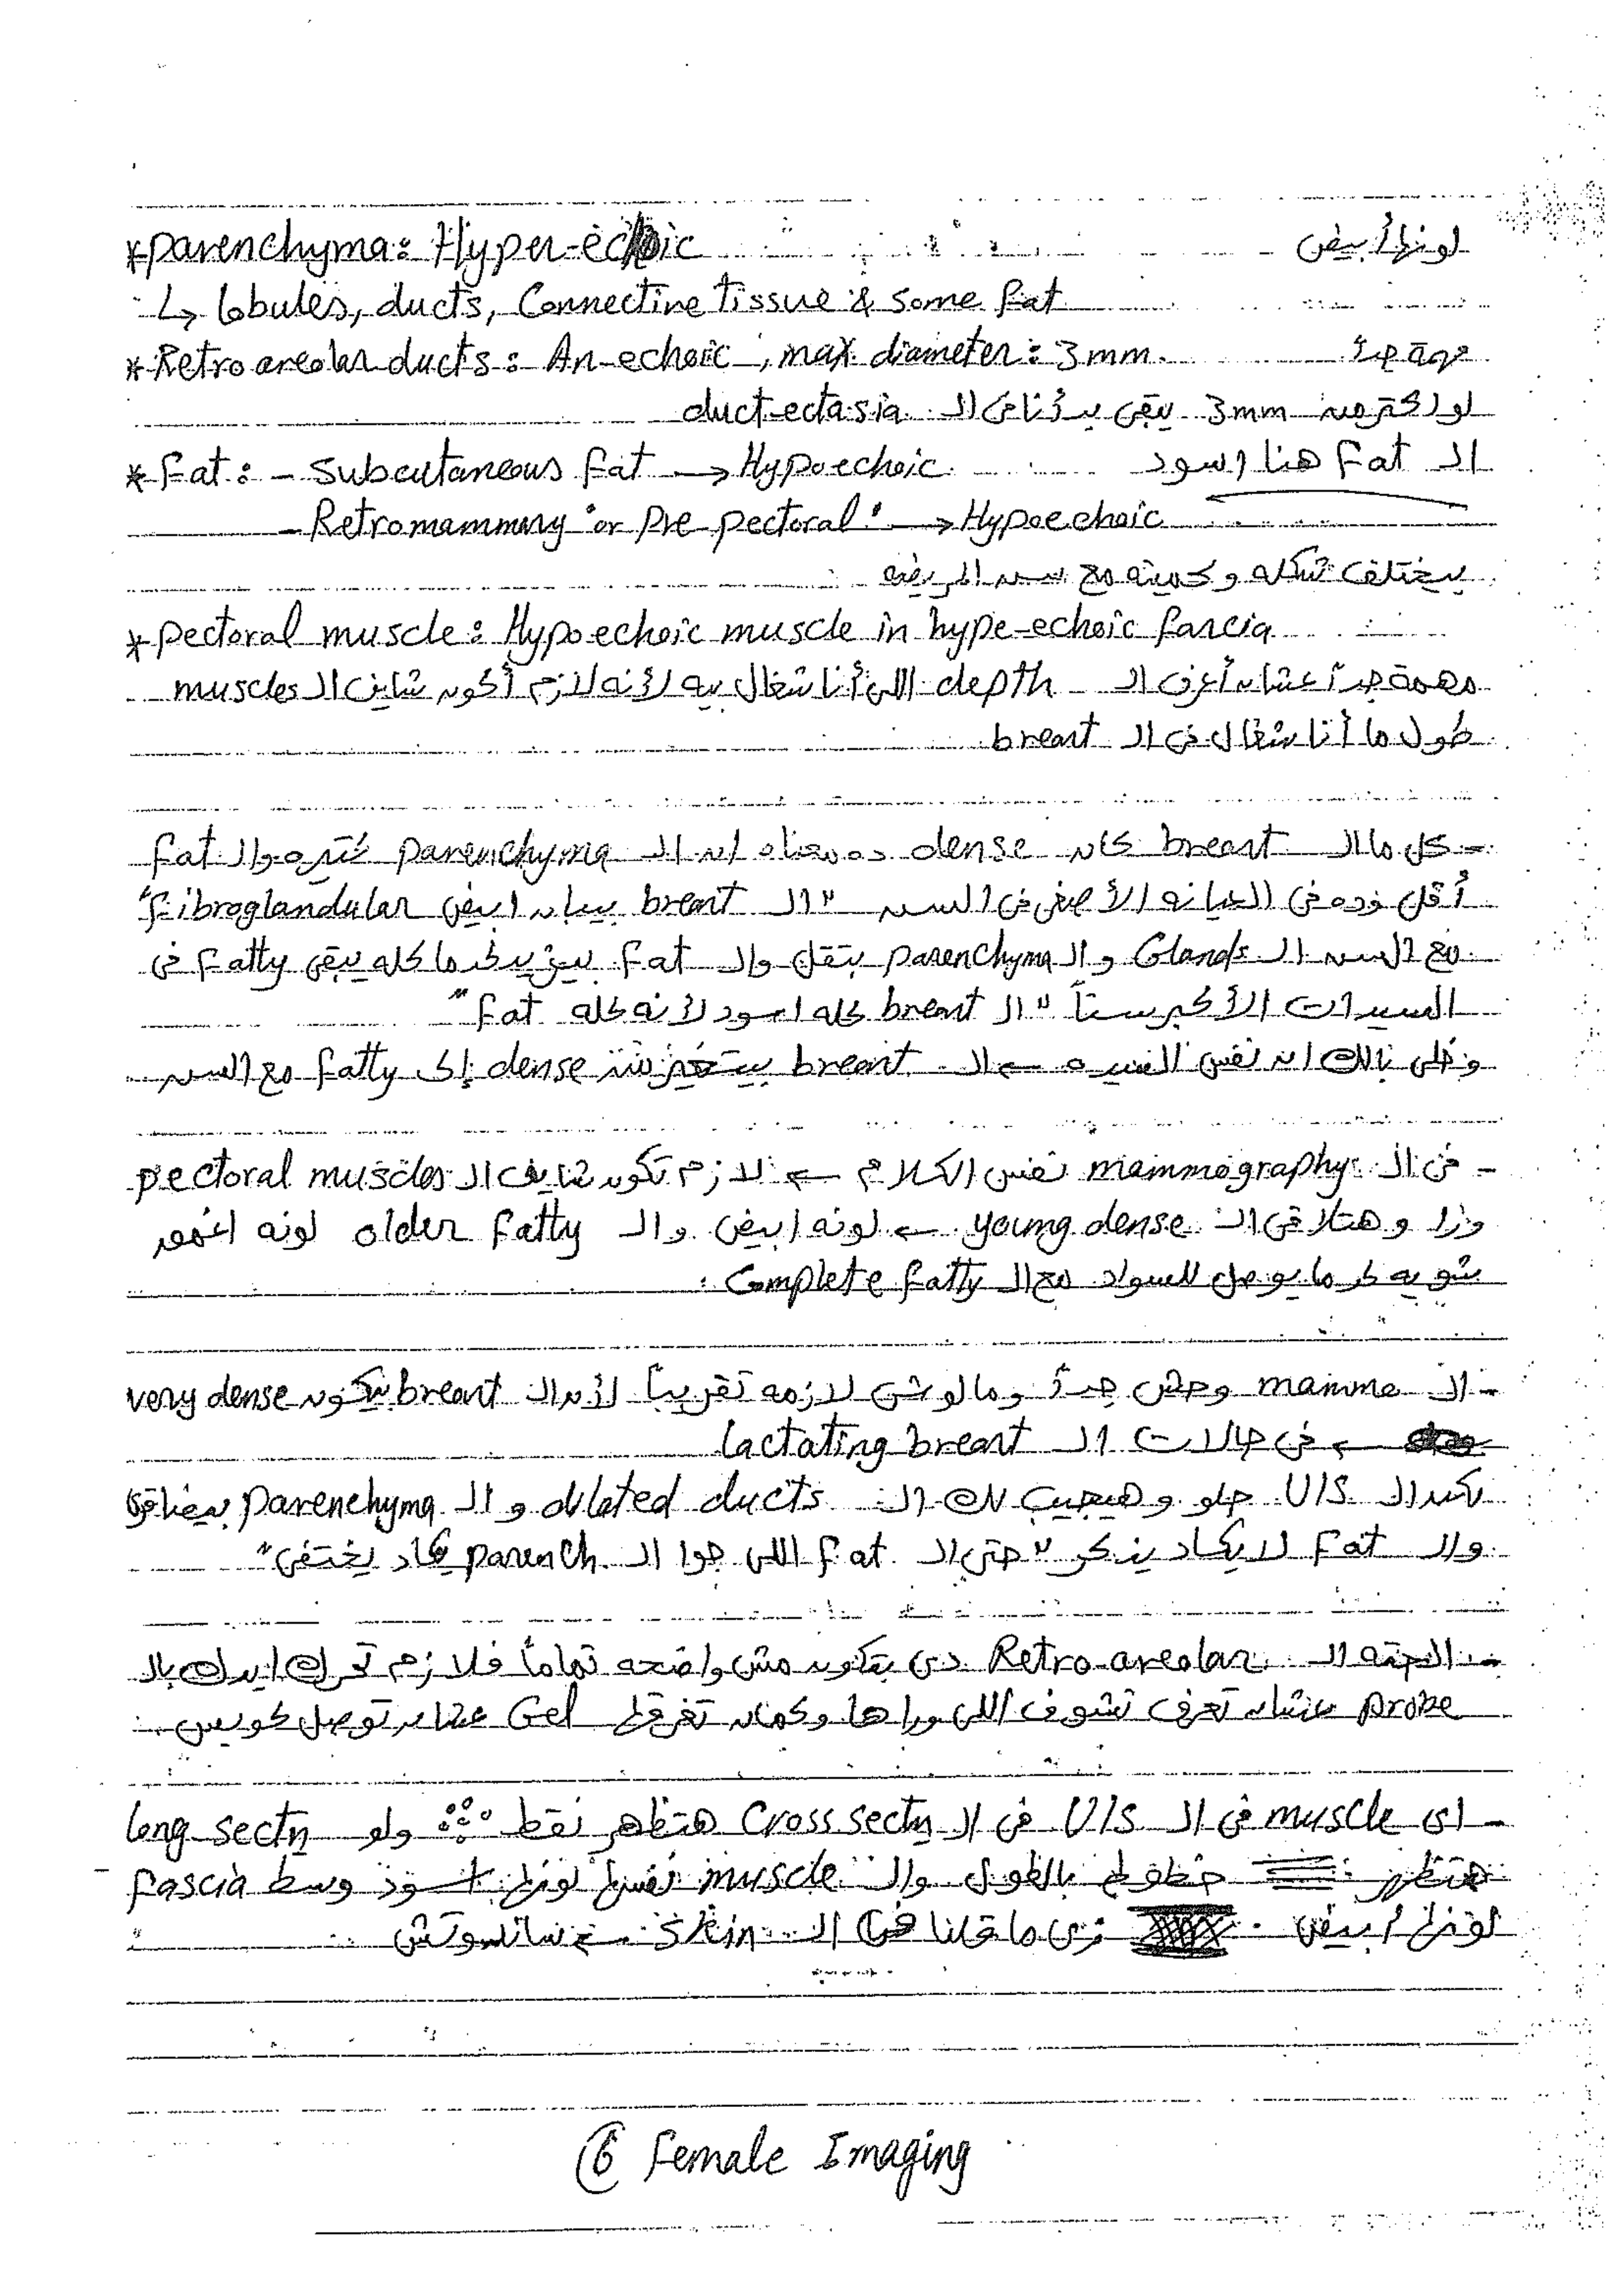 *parenchyma: Hyper-echoic لونها أبيض
↳ lobules, ducts, Connective tissue & some fat
* Retroareolar ducts: An-echoic, max diameter: 3mm. مهمة جداً
لو اكتر من 3mm يبقى بدأنا في الـ duct-ectasia
* Fat: - Subcutaneous fat → Hypoechoic الـ Fat هنا اسود
- Retromammary "or Pre-pectoral" → Hypoechoic
بيختلف شكله وكميته مع سن المريضه
* pectoral muscle: Hypoechoic muscle in hype-echoic fascia
مهمة جداً عشان أعرف الـ depth اللي أنا شغال بيه لأنه لازم أكون شايف الـ muscles
طول ما أنا شغال في الـ breast
- كل ما الـ breast كان dense ده معناه ان الـ parenchyma كتيره والـ fat
أقل وده في العيانه الأصغر في السن "الـ breast بيبان ابيض fibroglandular"
مع السن الـ Glands والـ parenchyma بتقل والـ fat بيزيد لحد ما كله يبقى fatty في
السيدات الأكبر سناً "الـ breast كله اسود لأنه كله fat"
وخلي بالك ان نفس السيده ← الـ breast بيتغير من dense إلى fatty مع السن
- في الـ mammography نفس الكلام ← لازم تكون شايف الـ pectoral muscles
ورا وهتلاقي الـ young dense ← لونه ابيض والـ older fatty لونه اغمق
شويه لحد ما يوصل للسواد مع الـ Complete fatty.
- الـ mammo وحش جداً ومالوش لازمه تقريباً لأن الـ breast بيكون very dense
← في حالات الـ lactating breast
لكن الـ U/S حلو وهيجيب لك الـ dilated ducts والـ parenchyma
والـ fat لا يكاد يذكر "حتى الـ fat اللي جوا الـ parench. يكاد يختفي"
- الحته الـ Retro-areolar دي بتكون مش واضحه تماماً فلازم تحرك ايدك بالـ
probe عشان تعرف تشوف اللي وراها وكمان تغرقها Gel عشان توصل كويس.
- اى muscle في الـ U/S في الـ Cross sectn هتظهر نقط ولو long sectn
هتظهر خطوط بالطول والـ muscle نفسها لونها اسود وسط fascia
لونها ابيض. زى ما قلنا في الـ skin ← ساندوتش
6 Female Imaging